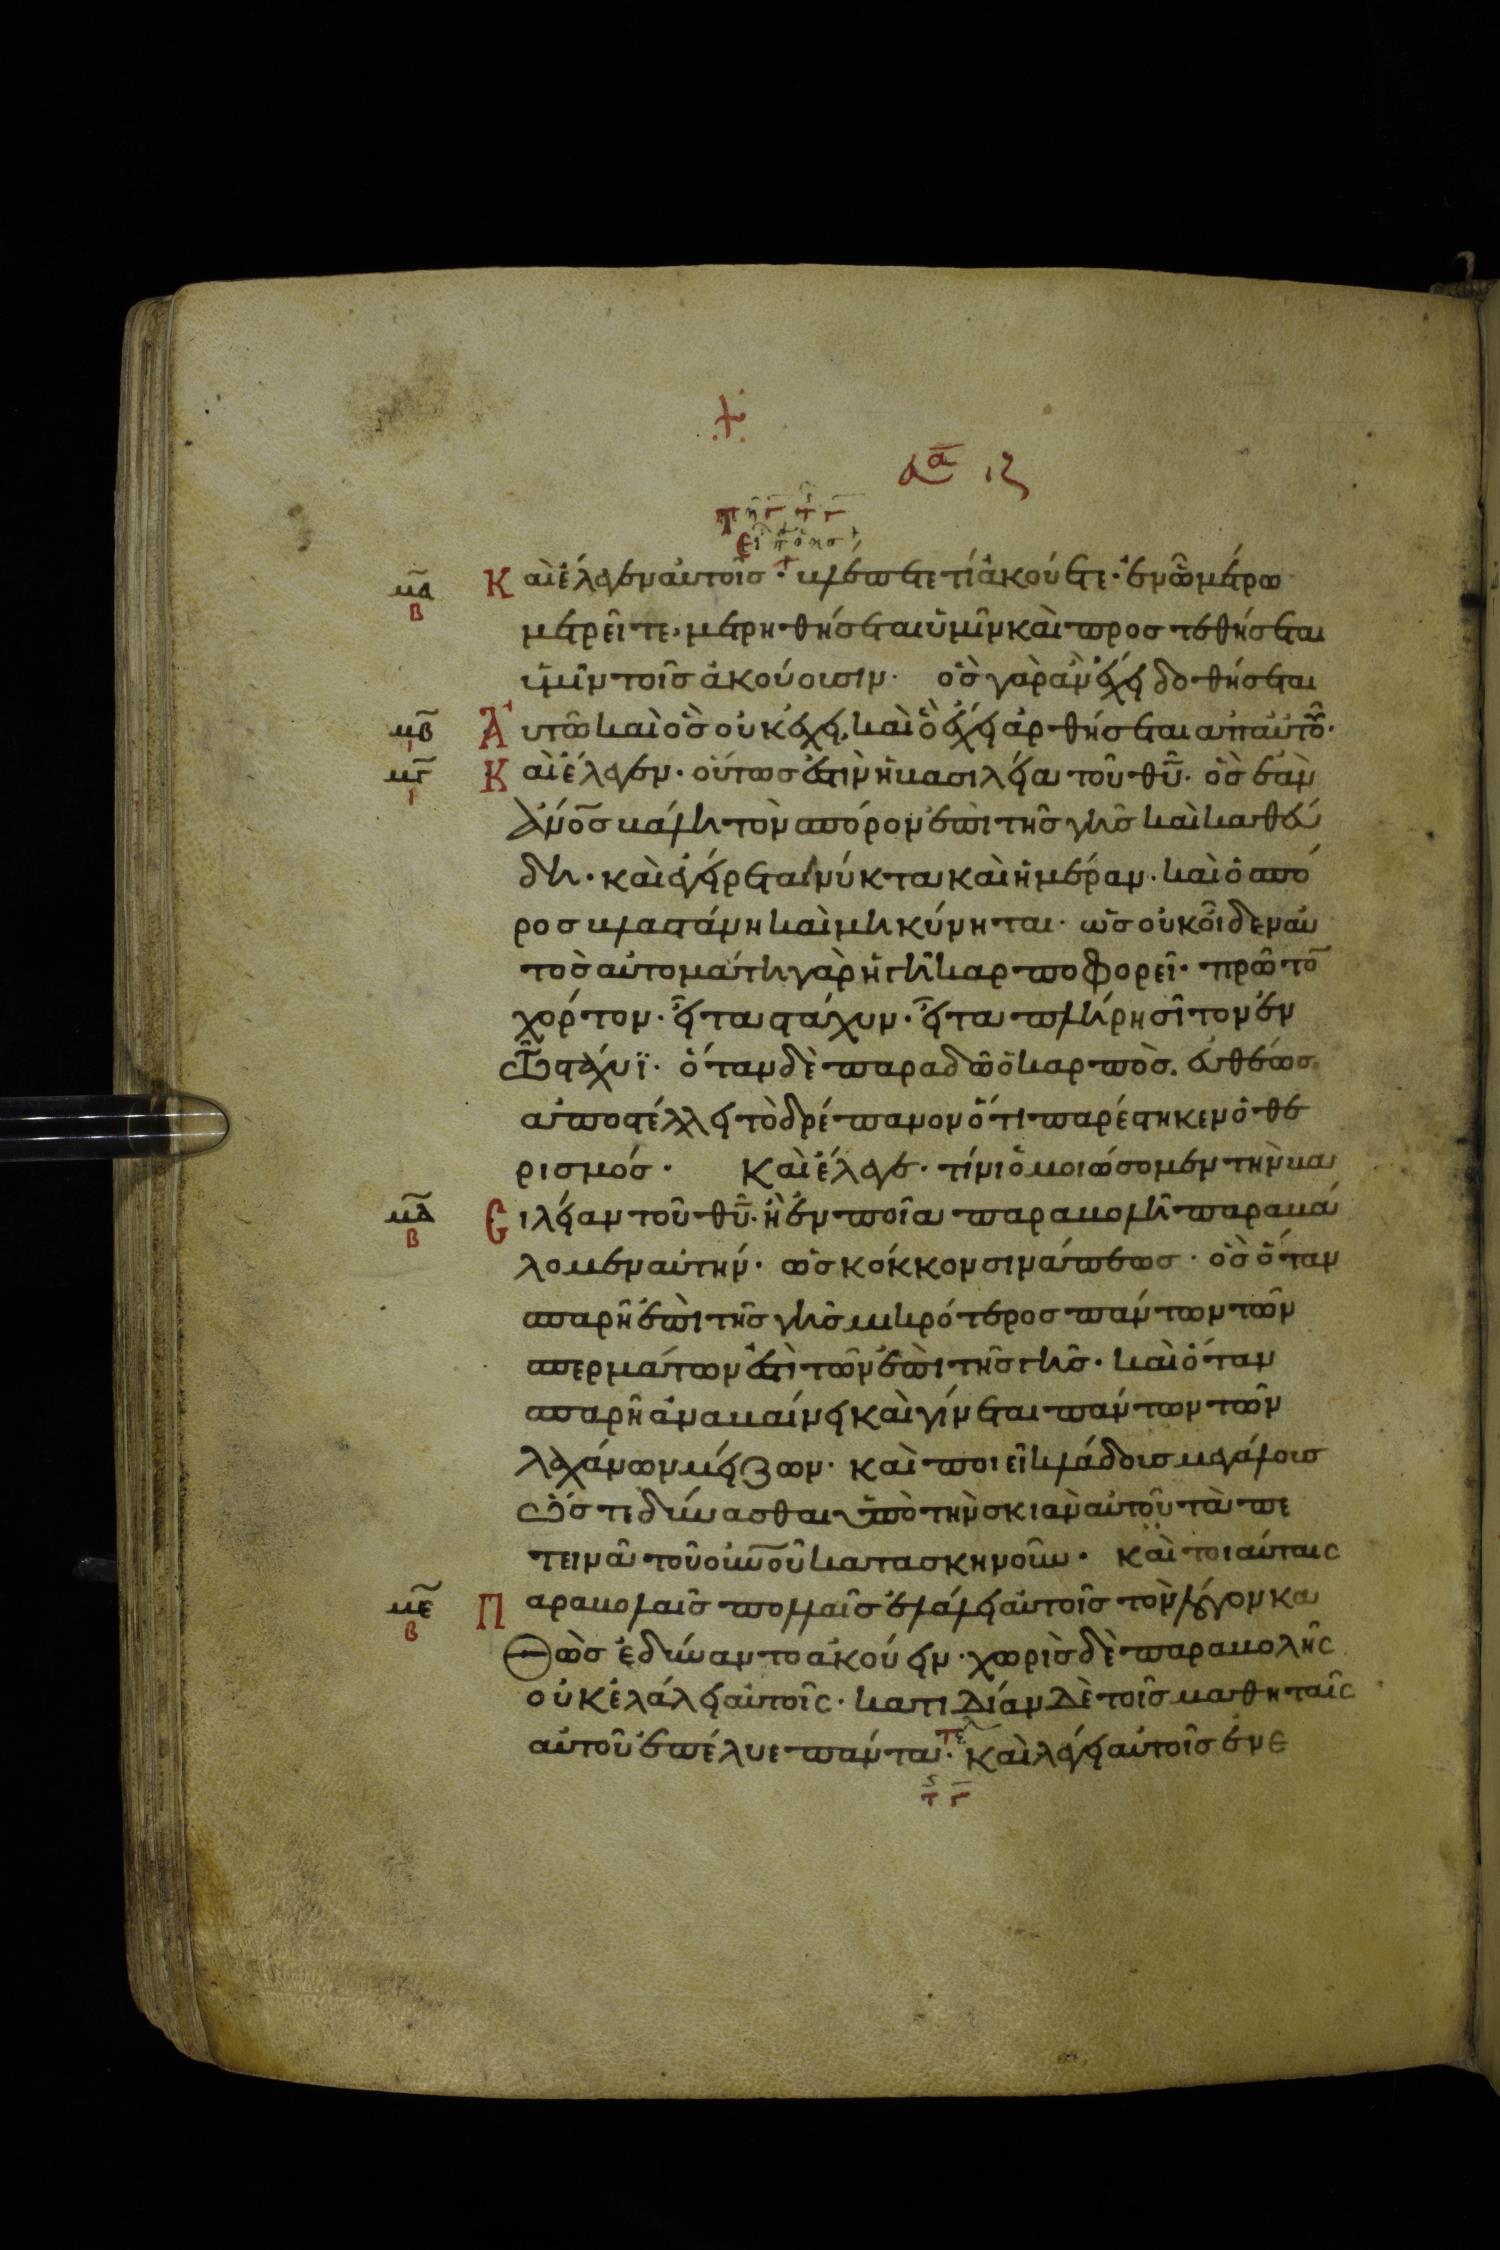 ιζ
μα Καὶ ἔλεγεν αὐτοῖς· βλέπετε τί ἀκούετε· ἐν ᾧ μέτρω
β
μετρεῖτε, μετρηθήσεται ὑμῖν καὶ προστεθήσεται
ὑμῖν τοῖς ἀκούουσιν· ὃς γὰρ ἂν ἔχει δοθήσεται
μβ Αυτῶ καὶ ὃς οὐκ ἔχει, καὶ ὃ ἔχει ἀρθήσεται απαὐτοῦ·
μγ Καὶ ἔλεγεν· οὕτως ἐστὶν ἡ βασιλεία τοῦ θῦ· ὃς ἐὰν
ἄνος βάλη τὸν σπόρον ἐπὶ τῆς γῆς καὶ καθεύ
δη· καὶ ἐγείρεται νύκτα καὶ ἡμέραν· καὶ ὁ σπό
ρος βλαστάνη καὶ μηκύνηται· ὡς οὐκ οἶδεν αὐ
τὸς αὐτομάτη γὰρ ἡ γῆ καρποφορεῖ· πρῶτο
χόρτον· εἶτα στάχυν· εἶτα πλήρη σῖτον ἐν
τῶ στάχυϊ· ὅταν δὲ παραδῶ ὁ καρπὸς. εὐθέως
ἀποστέλλει τὸ δρέπανον ὅτι παρέστηκεν ὁ θε
ρισμός· Καὶ ἔλεγε· τίνι ὁμοιώσομεν τὴν βα
μδ Σιλείαν τοῦ θῦ· ἢ ἐν ποῖα παραβολῆ παραβά
β
λομεν αὐτην· ὡς κόκκον σινάπεως· ὃς ὅταν
σπαρῆ ἐπὶ τῆς γῆς μικρότερος πάντων τῶν
σπερμάτων ἐστὶ τῶν ἐπὶ τῆς γῆς· καὶ ὅταν
σπαρῆ ἀναβαίνει καὶ γίνεται πάντων τῶν
λαχάνων μείζων· καὶ ποιεῖ κλάδους μεγάλους
ὥστε δύνασθαι ὑπὸ τὴν σκιὰν αὐτοῦ τὰ πε
τεινὰ τοῦ οὐνοῦ κατασκηνοῦν· καὶ τοιαύταις
με Παραβολαῖς πολλαῖς ἐλάλει αὐτοῖς τὸν λόγον κα
β
Θὼς ἐδύναντο ἀκούειν· χωρὶς δὲ παραβολῆς
οὐκ ἐλάλει αὐτοῖς· κατιδίαν δὲ τοῖς μαθηταῖς
αὐτοῦ ἐπέλυε πάντα· καὶ λέγει αὐτοῖς ἐν ε